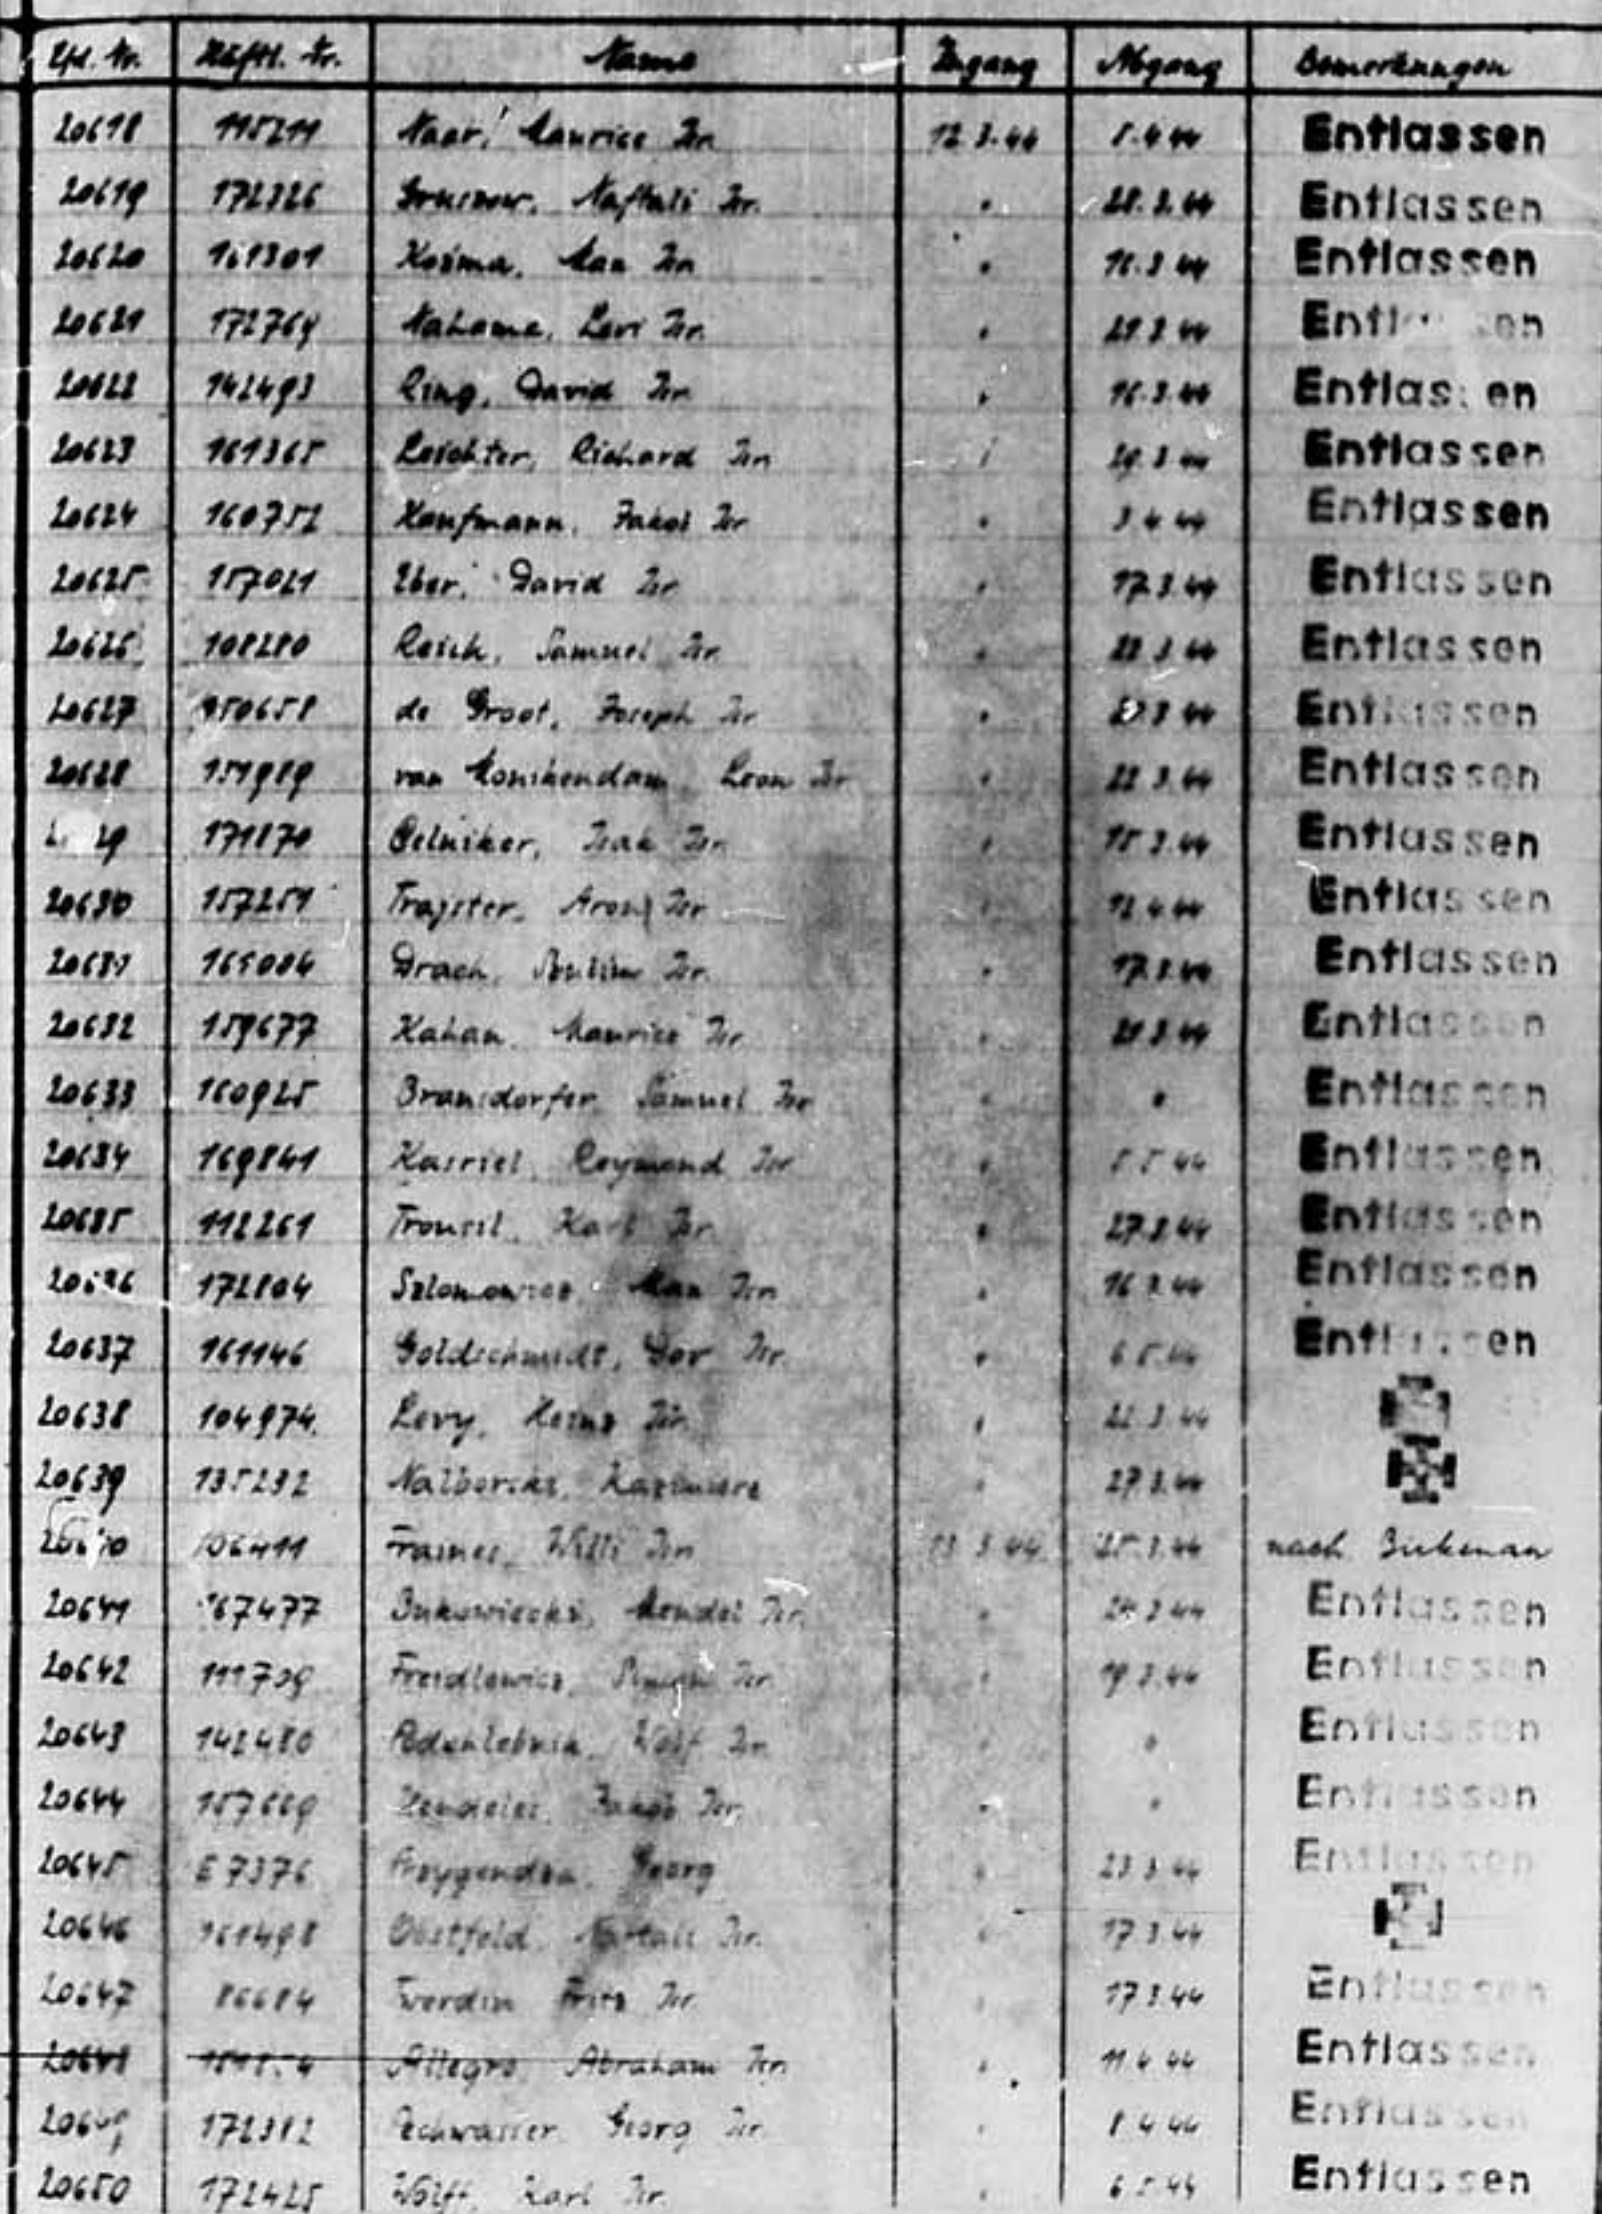 Lfd. Nr. Häftl. Nr. Name Zugang Abgang Bemerkungen
20618 115211 Naar, Maurice Isr. 12.3.44 5.4.44 Entlassen
20619 172326 Naftali Isr. " 28.3.44 Entlassen
20620 161301 Kosma, Max Isr. " 16.3.44 Entlassen
20621 172764 Nahama, Levi Isr. " 21.3.44 Entlassen
20622 142493 Ring, David Isr. " 16.3.44 Entlassen
20623 161365 Leichter, Richard Isr. " 29.3.44 Entlassen
20624 160752 Kaufmann, Jakob Isr. " 3.4.44 Entlassen
20625 157021 David Isr. " 17.3.44 Entlassen
20626 108280 Reich, Samuel Isr. " 22.3.44 Entlassen
20627 150658 de Groot, Joseph Isr. " Entlassen
20628 151989 van Leon Isr. " 22.3.44 Entlassen
171870 Celniker, Isak Isr. " 15.3.44 Entlassen
20630 157251 Trajster, Aron Isr. " 12.4.44 Entlassen
20631 Drach, Isr. " 17.3.44 Entlassen
20632 159677 Kahan, Maurice Isr. " 21.3.44 Entlassen
20633 160925 Bransdorfer, Samuel Isr. " " Entlassen
20634 169841 Kasriel, Reymond Isr. " 5.5.44 Entlassen
20635 112261 Karl Isr. " 27.3.44 Entlassen
20636 172804 Szlomowicz, Max Isr. " 16.3.44 Entlassen
20637 161146 Goldschmidt, Isr. " 6.5.44 Entlassen
20638 104974 Levy, Heinz Isr. " 22.3.44
20639 135232 Nalborski, Kazimierz " 27.3.44
106411 Willi Isr. 13.3.44 25.3.44 nach Birkenau
20641 67477 Bukowiecki, Mendel Isr. " 24.3.44 Entlassen
20642 111739 Frendlewicz, Isr. " 19.3.44 Entlassen
20643 142480 Podchlebnik, Wolf Isr. " " Entlassen
20644 157669 Jakob Isr. " " Entlassen
20645 E 7376 Georg " 23.3.44 Entlassen
20646 161498 Obstfeld, Naftali Isr. " 17.3.44
20647 86684 Fritz Isr. " 17.3.44 Entlassen
20648 Allegro, Abraham Isr. " 11.4.44 Entlassen
20649 172382 Pechwasser, Georg Isr. " 8.4.44 Entlassen
20650 172425 Wolff, Karl Isr. " 6.5.44 Entlassen